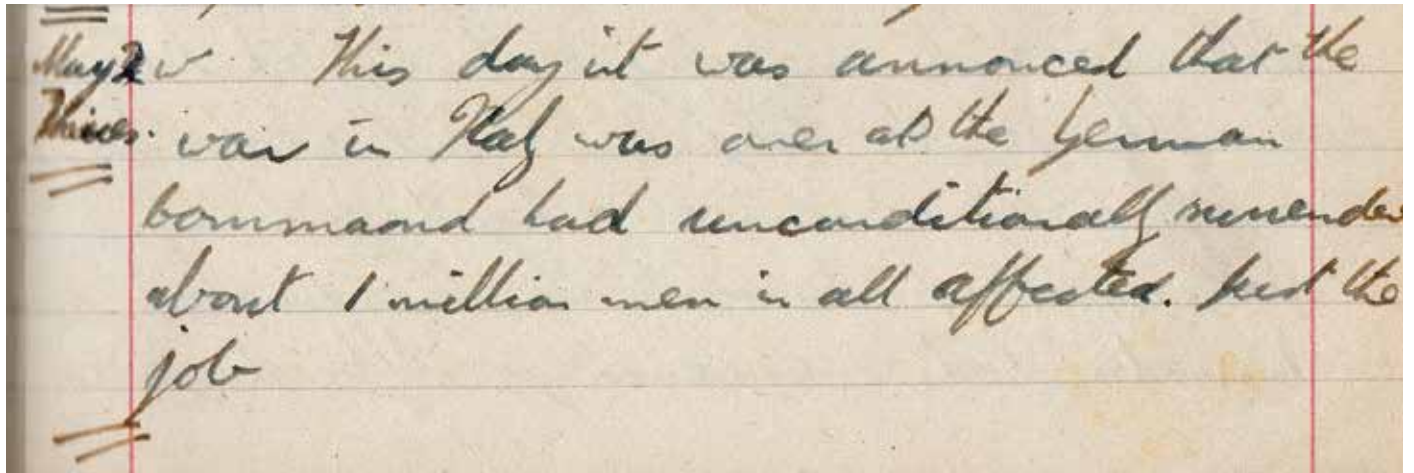 May 2 w This day it was annonced that the
Thurs. war in Italy was over all the German
Commaond had unconditionally surrender
about 1 million men in all affected. Just the
job